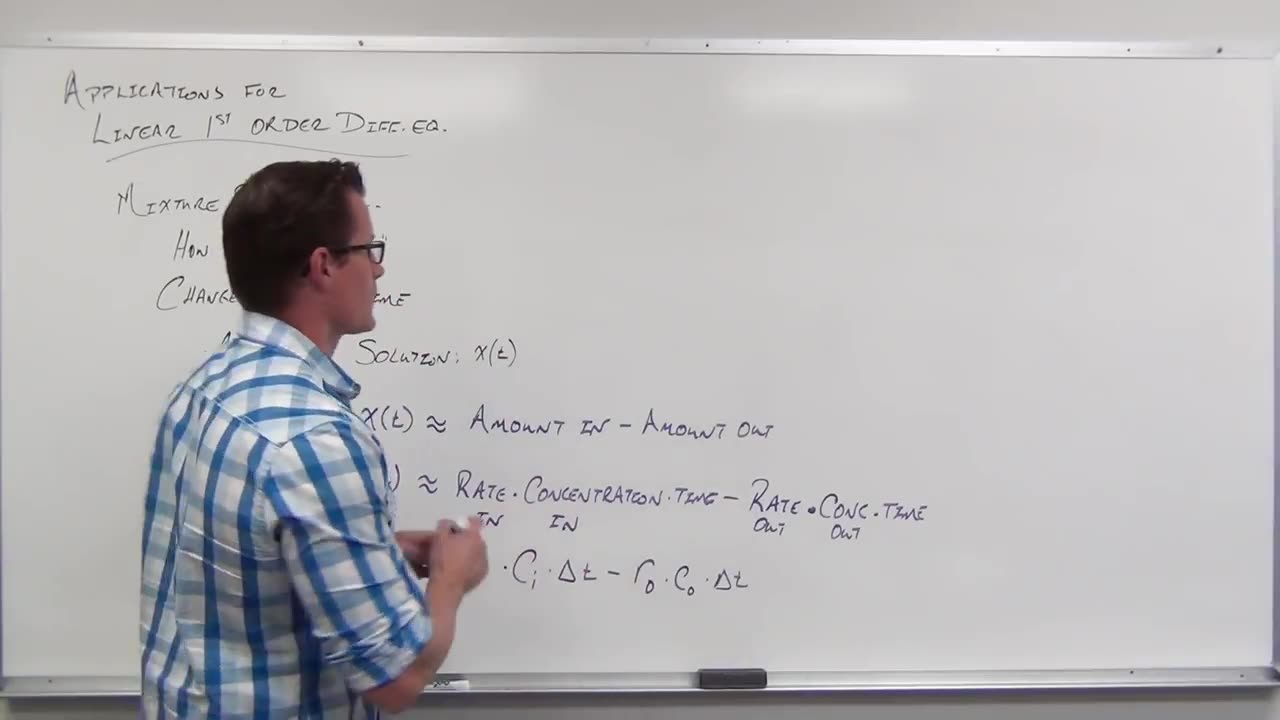 APPLICATIONS FOR
LINEAR 1ST ORDER DIFF. EQ.
MIXTURE
HOW
CHANGE
SOLUTION: X(t)
X(t) ≈ AMOUNT IN - AMOUNT OUT
) ≈ RATE IN · CONCENTRATION IN · TIME - RATE OUT · CONC OUT · TIME
· Ci · Δt - ro · Co · Δt